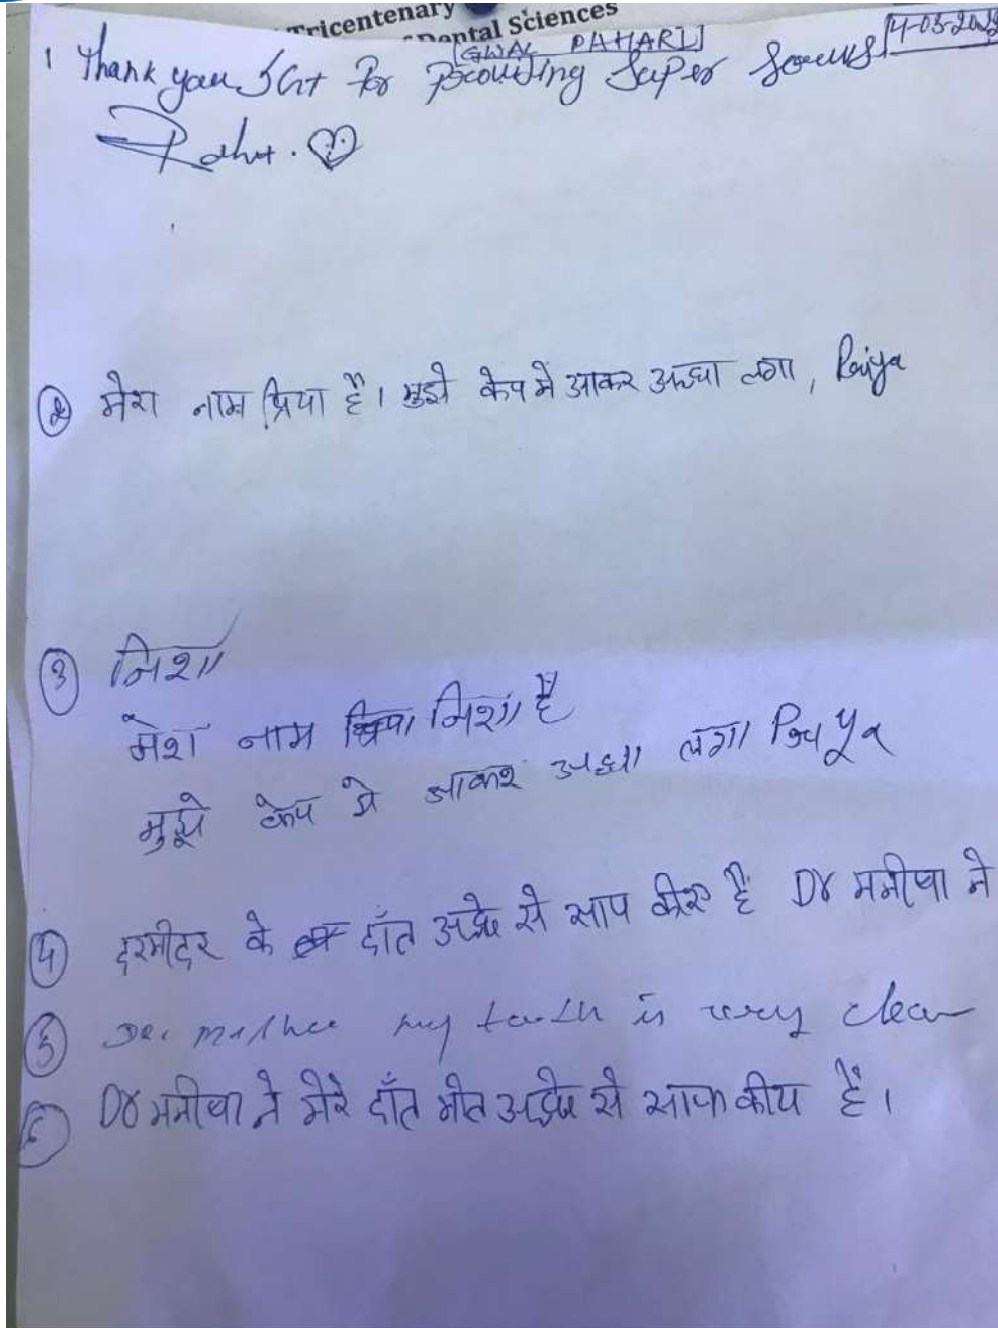 Tricentenary
Dental Sciences
[GWAL PAHARI]
1 Thank you SGT for Providing Super
② मेरा नाम प्रिया है। मुझे केप मे आकर अच्छा लगा, Priya
③ निशा
मेरा नाम निशा है
मुझे केप मे आकर अच्छा लगा Priya
④ के दाँत अच्छे से साप कीए हैं Dr मनीषा ने
⑤ my teeth is very clean
⑥ Dr मनीषा ने मेरे दाँत भोत अच्छे से साफ कीय हैं।